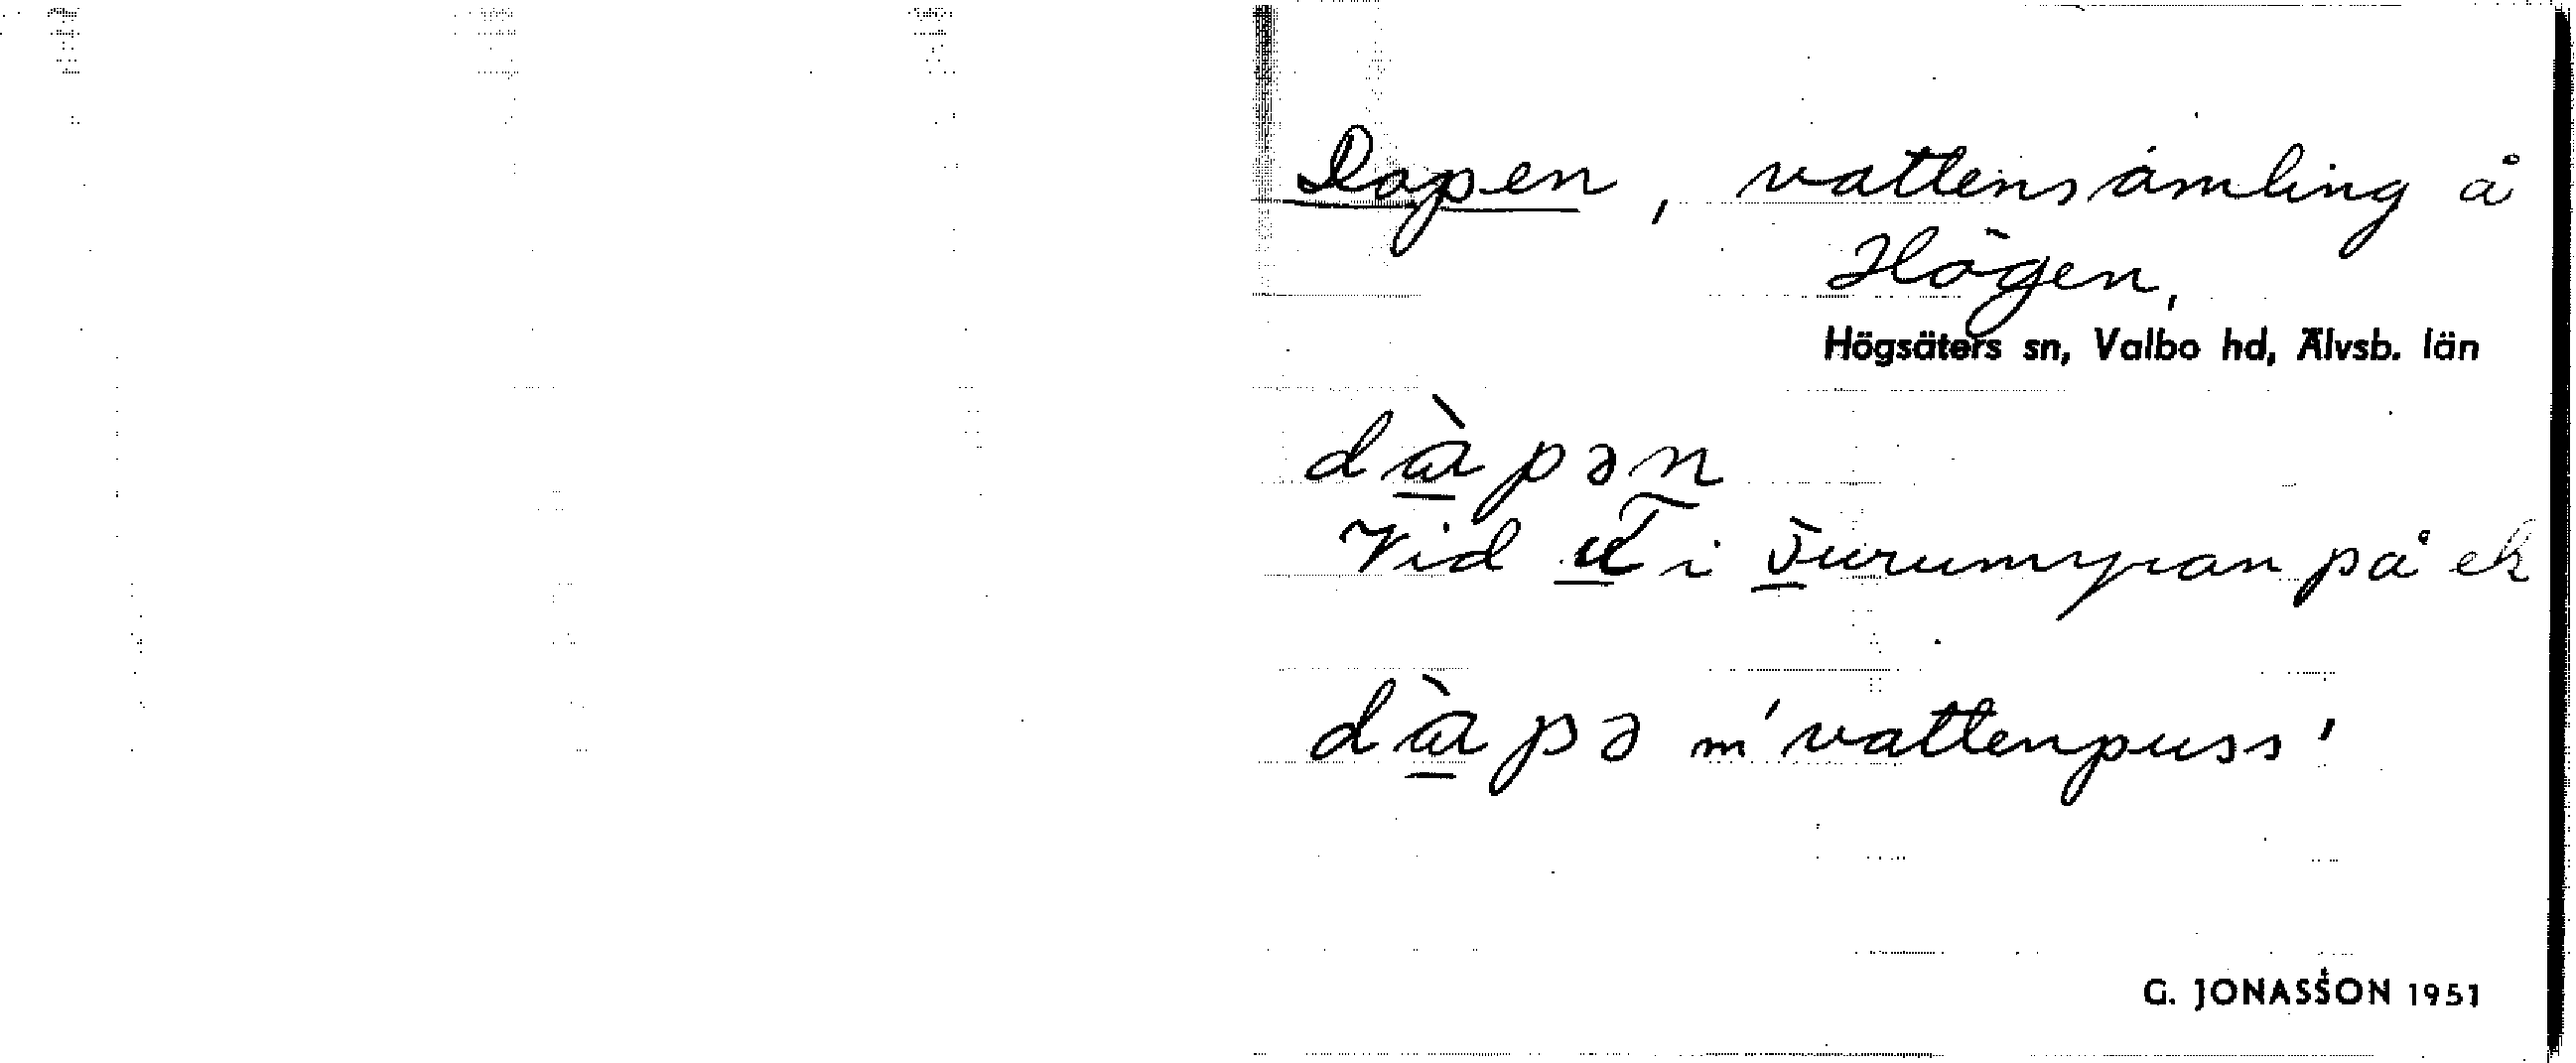 Dapen, vattensamling å
Högen,
Högsäters sn, Valbo hd, Älvsb. län
dàpən
Vid i på ek
dàpə m 'vattenpuss'
G. JONASSON 1951